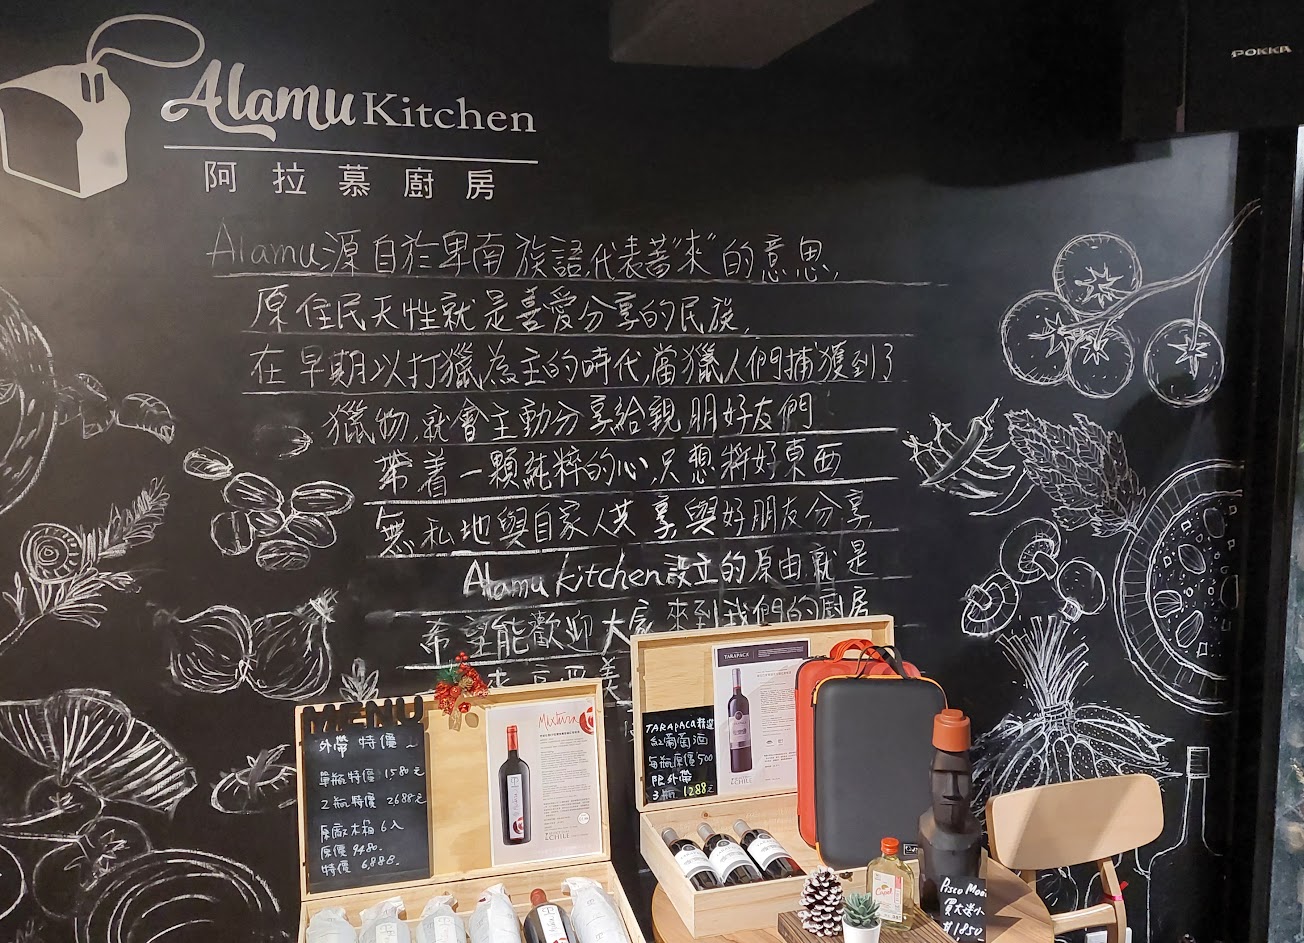 POKKA
Alamu Kitchen
阿拉慕廚房
Alamu源自於卑南族語,代表著"來"的意思,
原住民天性就是喜愛分享的民族,
在早期以打獵為主的時代,當獵人們捕獲到了
獵物,就會主動分享給親朋好友們
帶着一顆純粹的心,只想將好東西
無私地與自家人共享與好朋友分享,
Alamu kitchen設立的原由就是
希望能歡迎大家來到我們的廚房
來享受美
MENU
外帶 特價
單瓶特價 1580元
2瓶特價 2688元
原廠木箱6入
原價 9480.
特價 6,888.
Mixtura
CHILE
TARAPACA
TARAPACA精選
紅葡萄酒
每瓶原價500
限外帶
3瓶 1288元
CHILE
Capel
Pisco Moai
買大送小
$1850